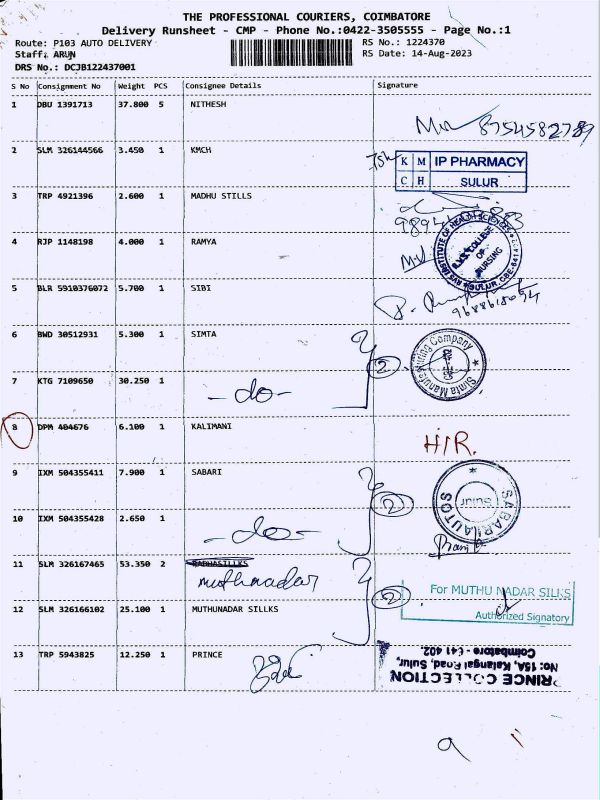 THE PROFESSIONAL COURIERS, COIMBATORE
Delivery Runsheet - CMP - Phone No.:0422-3505555 - Page No.:1
Route: P103 AUTO DELIVERY RS No.: 1224370
Staff: ARUN RS Date: 14-Aug-2023
DRS No.: DCJB122437001
S No Consignment No Weight PCS Consignee Details Signature
1 DBU 1391713 37.800 5 NITHESH
8754582789
2 SLM 326144566 3.450 1 KMCH
K M IP PHARMACY
C H SULUR
3 TRP 4921396 2.600 1 MADHU STILLS
4 RJP 1148198 4.000 1 RAMYA
RVS INSTITUTE OF HEALTH SCIENCES
RVS COLLEGE OF NURSING
SULUR, CBE-641 402
5 BLR 5910376072 5.700 1 SIBI
6 BWD 30512931 5.300 1 SIMTA
2
Simta Manufacturing Company
7 KTG 7109650 30.250 1
-do-
8 DPM 404676 6.100 1 KALIMANI
H/R.
9 IXM 504355411 7.900 1 SABARI
2
SABARI AUTOS
Sulur
10 IXM 504355428 2.650 1
-do-
11 SLM 326167465 53.350 2 RADHASILLKS
muthunadar
2
For MUTHU NADAR SILKS
Authorized Signatory
12 SLM 326166102 25.100 1 MUTHUNADAR SILLKS
13 TRP 5943825 12.250 1 PRINCE
PRINCE COLLECTION
No: 15A, Kalangal Road, Sulur,
Coimbatore - 641 402.